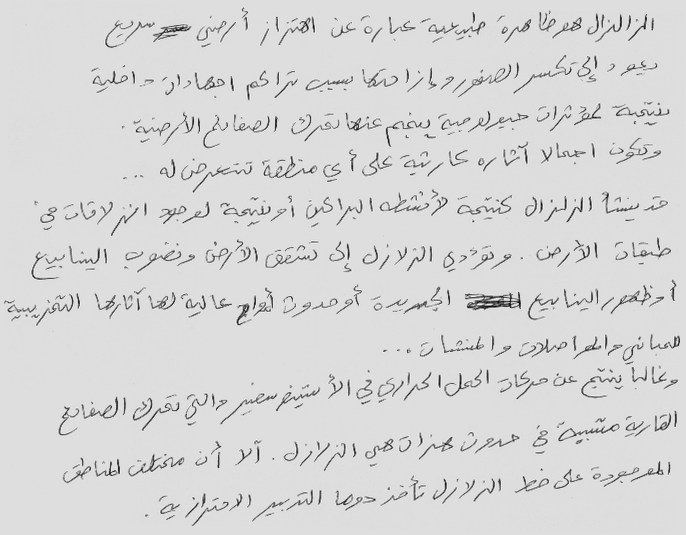 الزلزال هو ظاهرة طبيعية عبارة عن اهتزاز أرضي سريع
يعود إلى تكسر الصخور وإزاحتها بسبب تراكم اجهادات داخلية
نتيجة لمؤثرات جيولوجية ينجم عنها تحرك الصفائح الأرضية.
وتكون اجمالا آثاره كارثية على أي منطقة تتعرض له ...
قد ينشأ الزلزال كنتيجة لأنشطة البراكين أو نتيجة لوجود انزلاقات في
طبقات الأرض. وتؤدي الزلازل إلى تشقق الأرض ونضوب الينابيع
أو ظهور الينابيع الجديدة أو حدوث أمواج عالية لها آثارها التخريبية
للمباني والمواصلات والمنشات ...
وغالبا ينتج عن حركات الحمل الحراري في الأستينوسفير والتي تحرك الصفائح
القارية متسببة في حدوث هزات هي الزلازل. آلا أن مختلف المناطق
الموجودة على خط الزلازل تأخذ دوما التدبير الاحترازية.